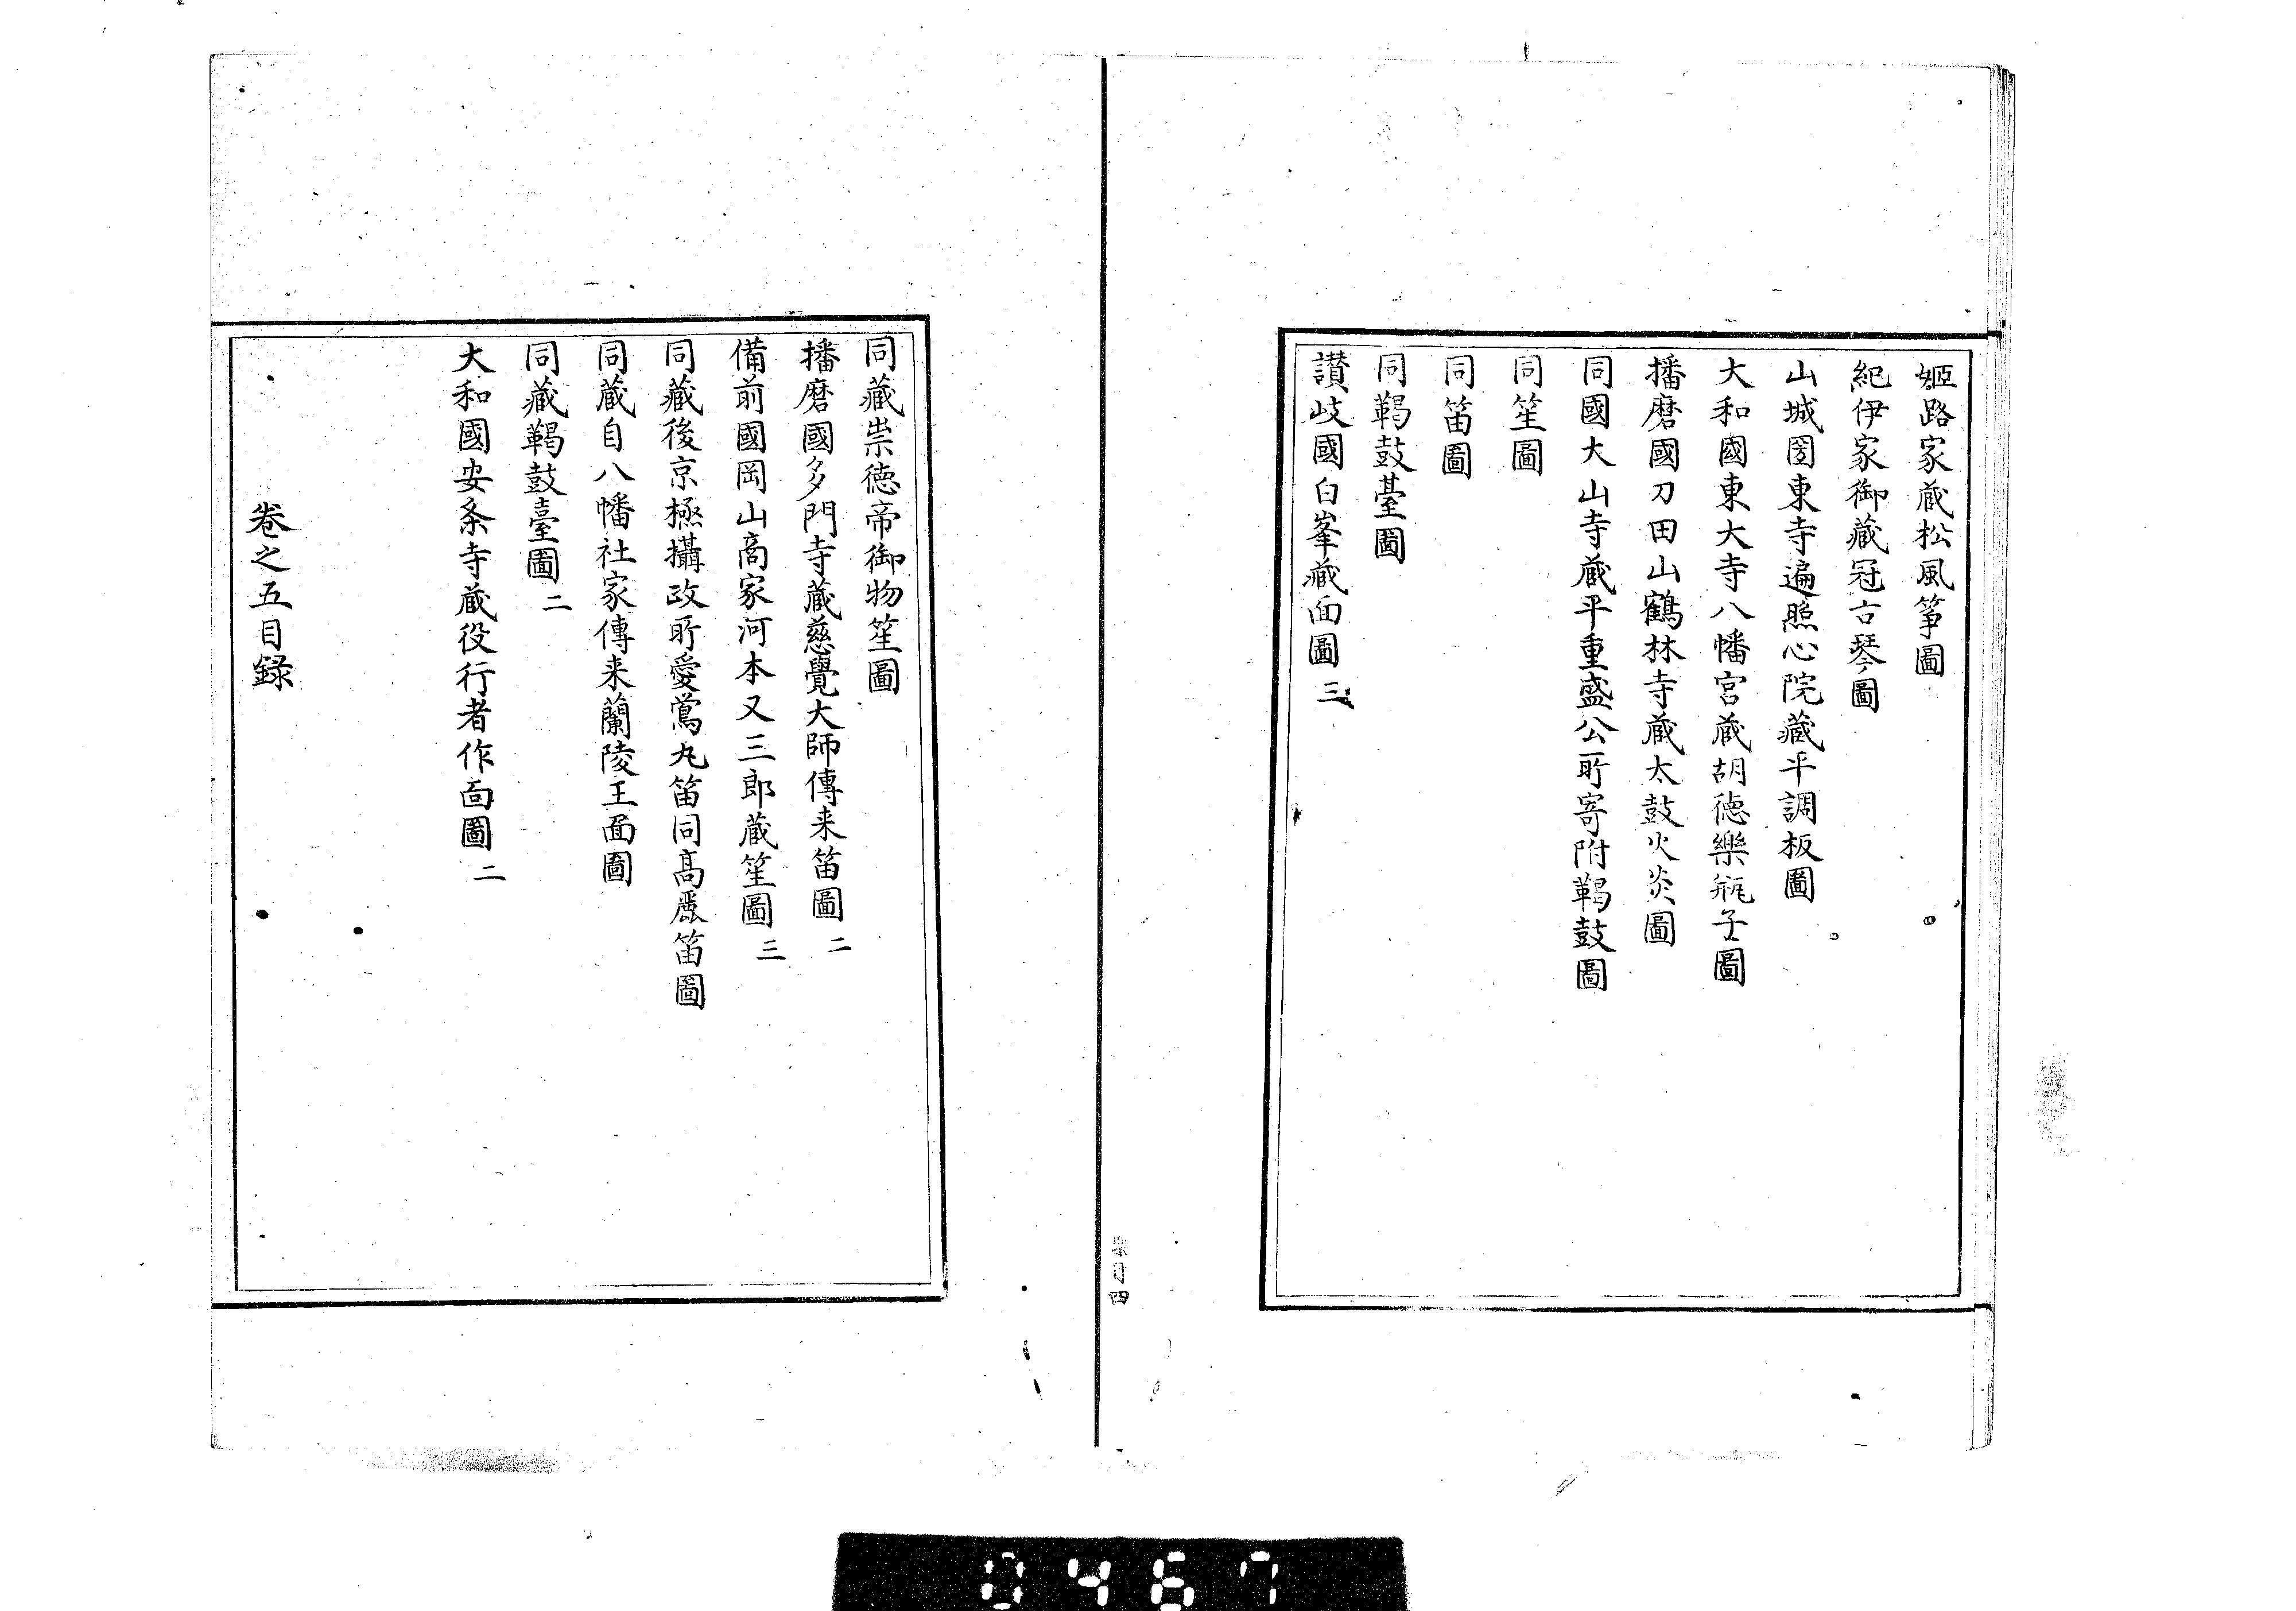 姬路家蔵松風箏圖
紀伊家御藏冠古琴圖
山城國東寺遍照心院藏平調板圖
大和國東大寺八幡宮蔵胡德樂瓶子圖
播磨國刀田山鶴林寺蔵太鼓火炎圖
同國大山寺蔵平重盛公所寄附鞨鼓圖
同笙圖
同笛圖
同鞨鼓臺圖
讃岐國白峯藏面圖 三
同藏崇德帝御物笙圖
播磨國多門寺蔵慈覺大師傳来笛圖 二
備前國岡山商家河本又三郎蔵笙圖 三
同藏後京極攝政所愛鶯丸笛同髙麗笛圖
同蔵自八幡社家傳来蘭陵王面圖
同藏鞨鼓臺圖 二
大和國安条寺蔵役行者作面圖 二
卷之五目録
樂目 四
0467